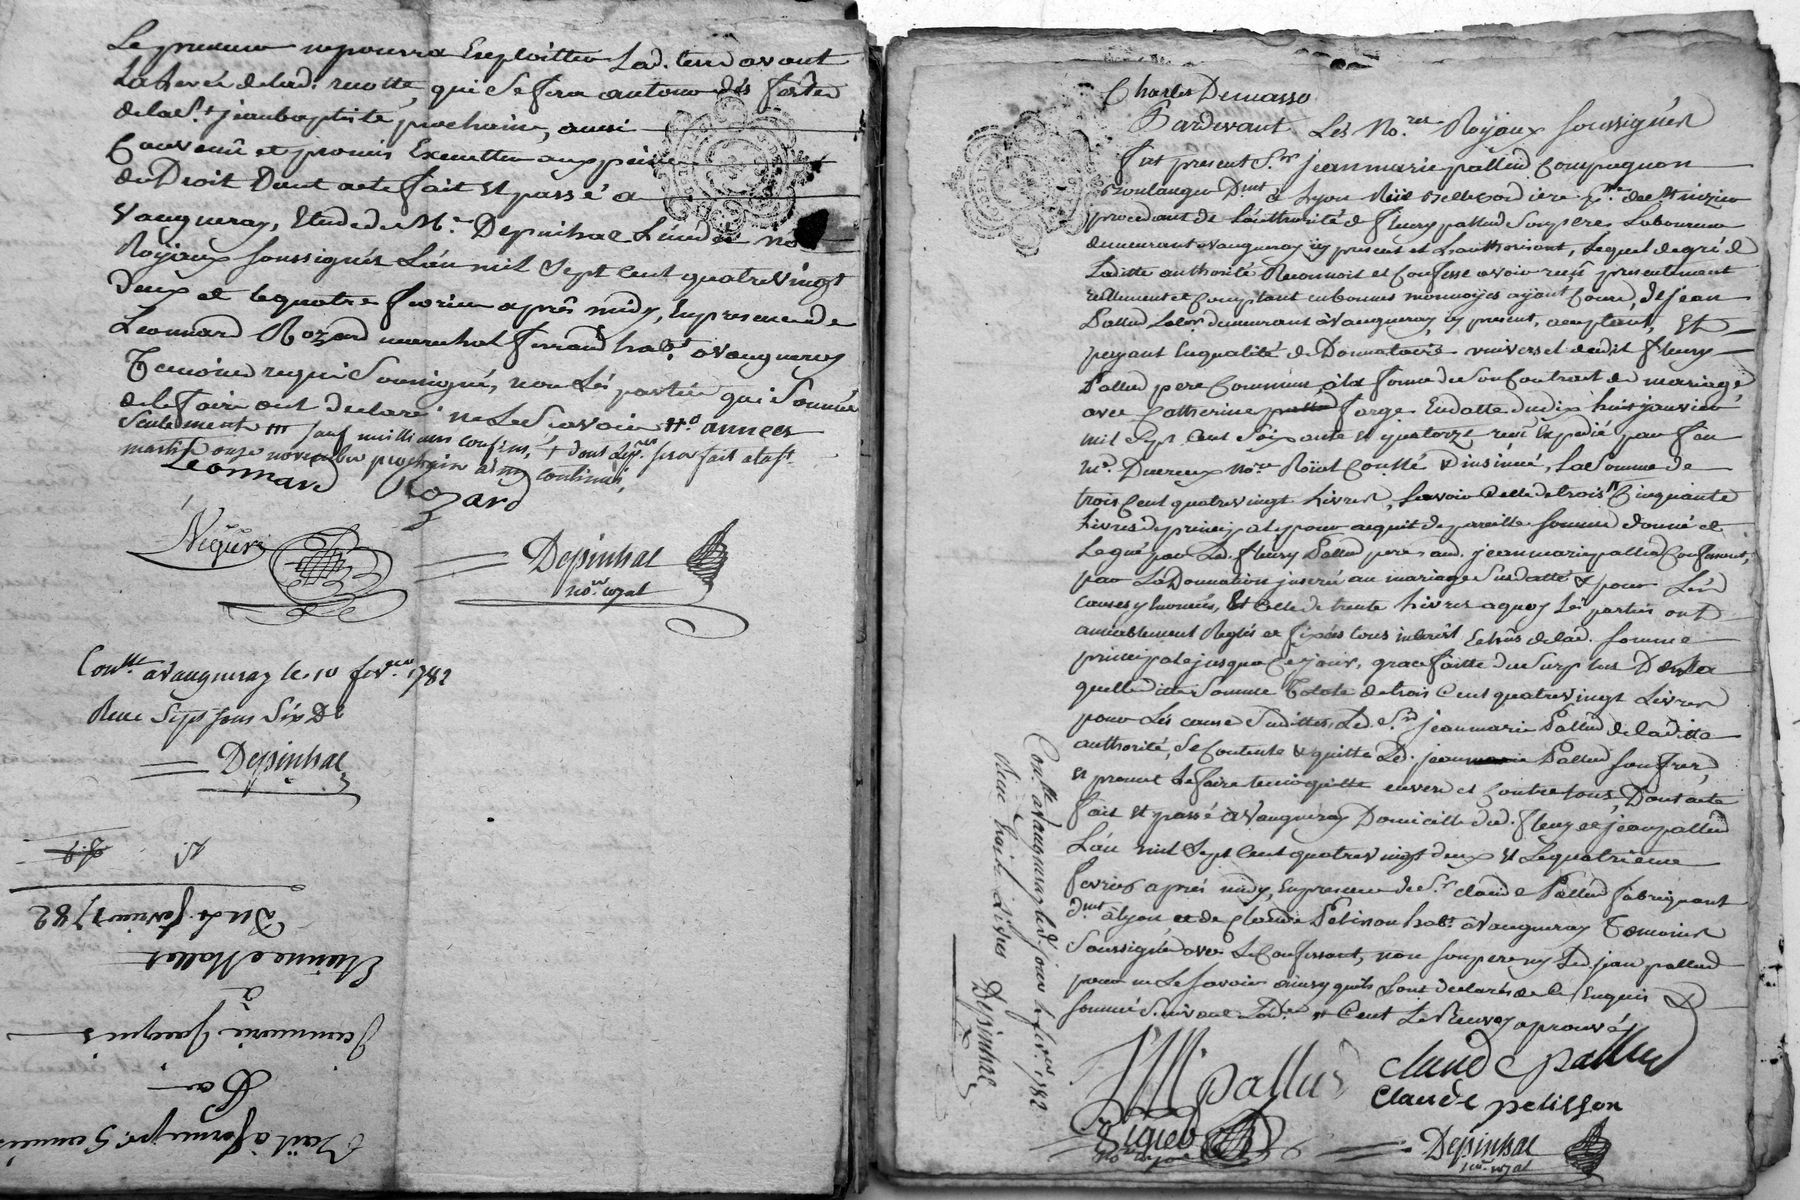 Le preneur ne pourra Exploitter Lad. terre avant
La levée de lad. recotte, qui se fera autour dés fettes
de la St jean baptiste prochaine, aussi
Convenû et promis Executter aux peines
de Droit Dont acte fait et passé a
Vaugneray, Etude de Me. Depinhac L'un des no
Royaux soussignés L'an mil sept cent quatre vingt
deux et le quatre fevrier aprés midy, En presence de
Leonnard Rozard marechal ferrand hab.t a Vaugneray
Temoins requis Soussignés, non Lés parties qui Sommés
de le faire ont declaré ne Le Scavoir annees
Seulement sauf
martin onze novembre prochain
Leonnard Rozard
Niguer
Depinhac
no.re royal
Con.lle a Vaugneray le 10 fev.er 1782
Reçu Sept sous Six Ds
Depinhac
Du 4 fevrier 1782
Etienne Mallet
à
Jeanmarie Jacquis
Par
Bail a ferme pr. 5 années
Charles Demasso
Pardevant Les No.res Royaux soussignés
fut present Sr. jean marie pallud Compagnon
Boulanger D.mt à Lyon Rüe Bellecordiere
procedant de L'authorité de fleury pallud Son pere Laboureur
demeurant a Vaugneray icy present et L'authorisant, Lequel de gré de
Laditte authorité Reconnoit et Confesse avoir reçû presentement
reellement et Comptant en bonnes monnoyes ayant Cours, de jean
Pallud Labr. demeurant à Vaugneray, icy present, acceptant, Et
payant En qualité de Donnataire universel dudit fleury
Pallud pere Commun, à la forme de Son Contrat de mariage
avec Catherine farge En datte du dix huit janvier
mil Sept Cent Soixante et quatorze reçu Expedié par feu
Me. Ducreux No.re Royal Conllé & insinué, La Somme de
trois Cent quatre vingt Livres, Scavoir Celle de trois Cinquante
Livres de principal pour acquit de pareille Somme donné et
Legué par Led. fleury Pallud pere aud. jean marie pallud Confessant,
par La Donnation inseré au mariage Susdatté & pour Lés
causes y Enoncés, Et Celle de trente Livres a quoy Lés parties ont
amiablement Reglés et fixées tous interêts Echûs de lad. Somme
principale jusqu'a Ce jour, grace faitte du Surplus De La
quelle ditte Somme Totale de trois Cent quatre vingt Livres
pour Lés cause Susdittes, Led. Sr. jean marie Pallud de laditte
authorité, Se Contente & quitte Led. jean Pallud Son frere,
et promet Le faire tenir quitte envers et Contre tous, Dont acte
fait et passé à Vaugneray Domicille dud. fleury et jean pallud
L'an mil Sept Cent quatre vingt deux et Le quatrieme
fevrier aprés midy, En presence de Sr. Claude Pallud fabriquant
D.mt à Lyon et de Claude Pelisson hab.t à Vaugneray Temoins
Soussignés avec Le Confessant, non Son pere ny Led. jean pallud
pour ne Le Scavoir ainsy qu'ils L'ont declarés de Ce Enquis &
sommé Suivant L'ord.ce Cent Le Renvoy aprouvé
JM pallud claude pallud
claude pelisson
Niguer
no.re royal
Depinhac
no.re royal
Con.lle a Vaugneray led. jour 1782
Reçu huit Livres Depinhac